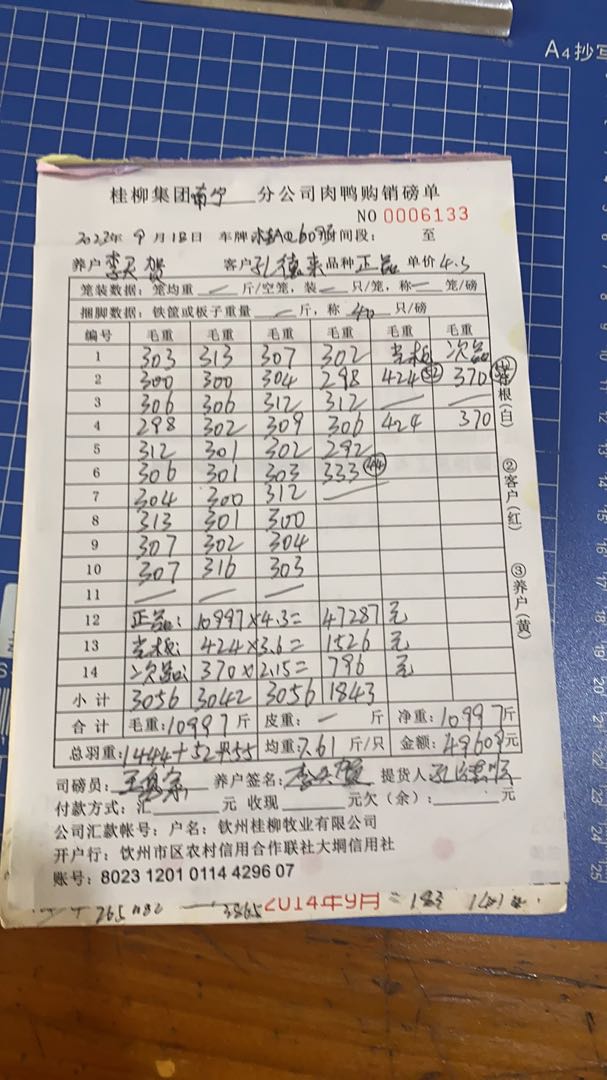 A4抄写
桂柳集团南宁 分公司肉鸭购销磅单
NO 0006133
2023年 9月18日 车牌 时间段: 至
养户 李 贺 客户 孔德来 品种 正品 单价 4.3
笼装数据: 笼均重 — 斤/空笼, 装 — 只/笼, 称 — 笼/磅
捆脚数据: 铁筐或板子重量 — 斤, 称 40 只/磅
编号 毛重 毛重 毛重 毛重 毛重 毛重
1 303 313 307 302 次品
2 300 300 304 298 424 52 370
3 306 306 312 312 — —
4 298 302 309 306 424 370
5 312 301 302 292
6 306 301 303 333 44
7 304 300 312 —
8 313 301 300
9 307 302 304
10 307 316 303
11 — — —
12 正品: 10997×4.3= 47287 元
13 424×3.6= 1526 元
14 次品: 370×2.15= 796 元
小计 3056 3042 3056 1843
合计 毛重: 10997 斤 皮重: — 斤 净重: 10997 斤
总羽重: 1444+52 55 均重: 7.61 斤/只 金额: 49609 元
①存根(白)
②客户(红)
③养户(黄)
司磅员: 养户签名: 李 贺 提货人
付款方式: 汇 元 收现 元欠(余): 元
公司汇款帐号: 户名: 钦州桂柳牧业有限公司
开户行: 钦州市区农村信用合作联社大垌信用社
账号: 8023 1201 0114 4296 07
3865 2014年9月